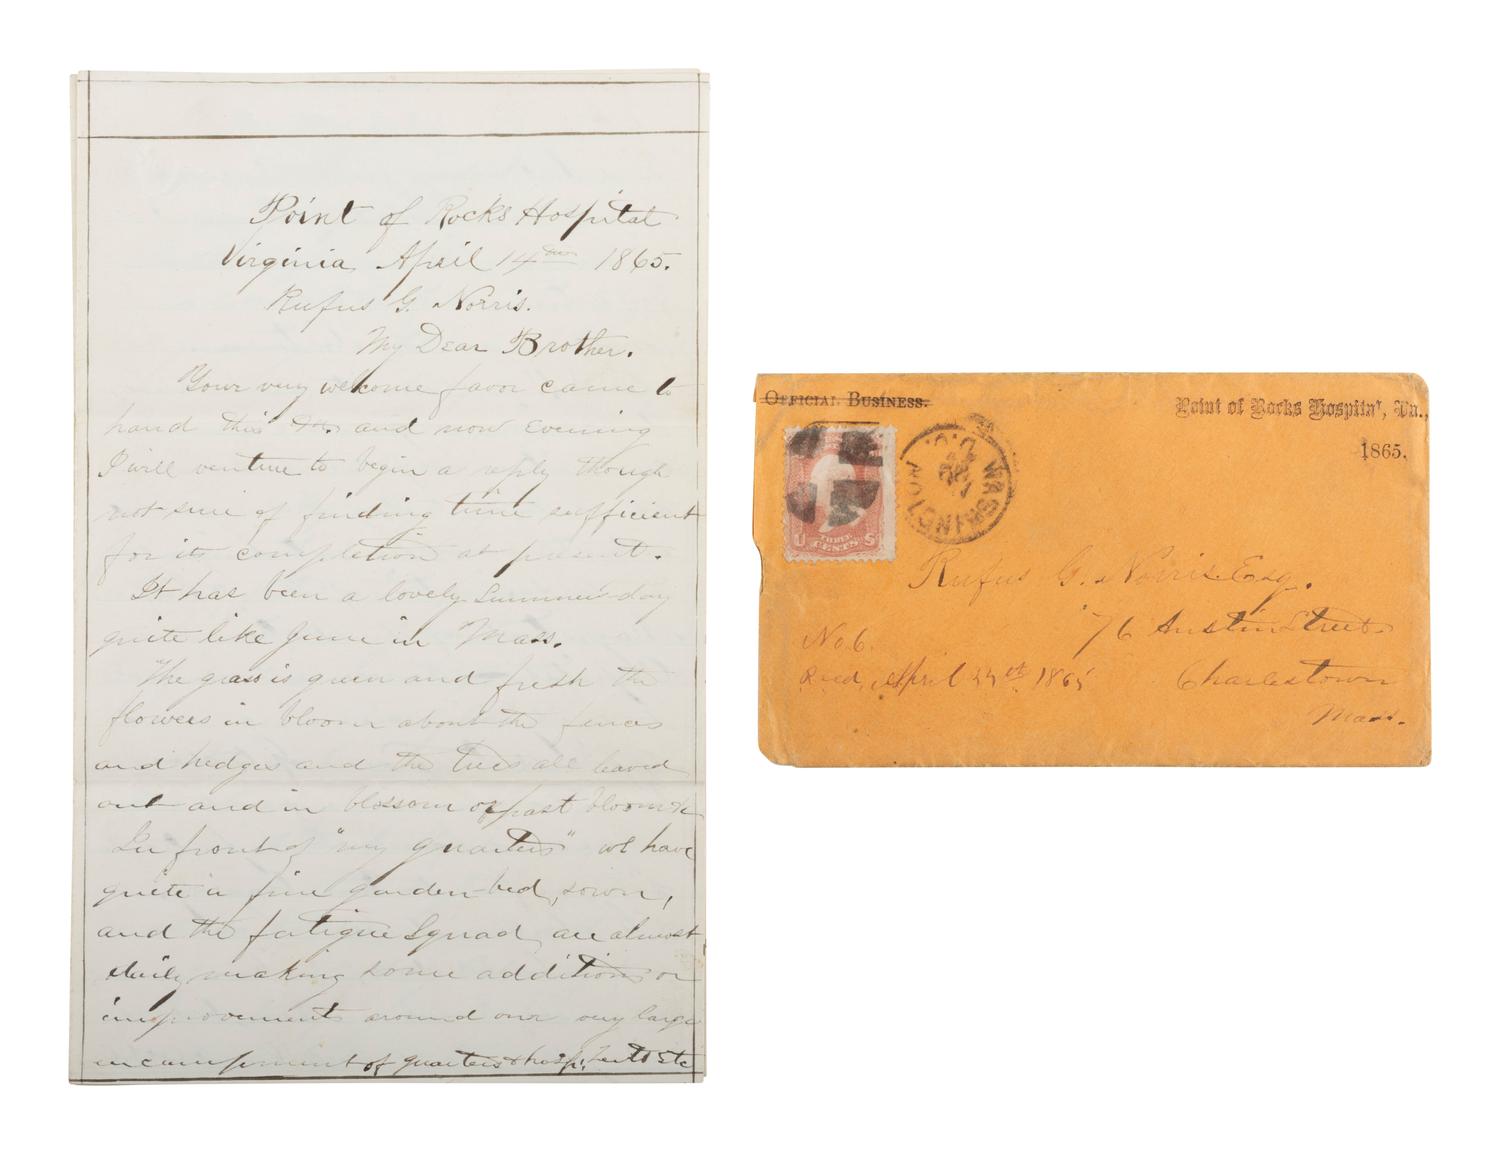 Point of Rocks Hospital
Virginia April 14th 1865.
Rufus G. Norris.
My Dear Brother.
Your very welcome favor came to
hand this and now evening
I will venture to begin a reply though
not sure of finding time sufficient
for its completion at present.
It has been a lovely Summer's day
quite like June in Mass.
The grass is green and fresh the
flowers in bloom about the fences
and hedges and the trees all leaved
out and in blossom or past bloom &c
In front of "my quarters" we have
quite a fine garden-bed, sown,
and the fatigue Squad are almost
daily making some additions or
improvements around our very large
encampment of quarters & hosp; tents Etc
Official Business.
Point of Rocks Hospital, Va.,
1865.
WASHINGTON D.C.
U THREE CENTS S
Rufus G. Norris Esq.
76 Austin Street.
Charlestown
Mass.
No 6.
Recd, April 22th 1865